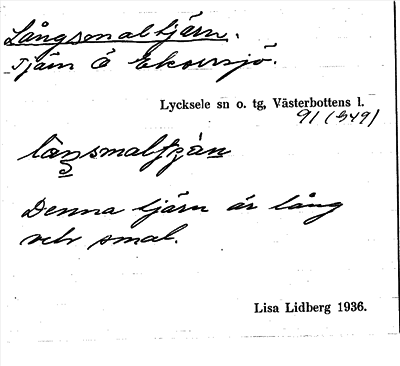 Långsmaltjärn.
Tjärn Ö Ekorrsjö.
Lycksele sn o. tg, Västerbottens l.
91 (549)
Denna tjärn är lång
och smal.
Lisa Lidberg 1936.